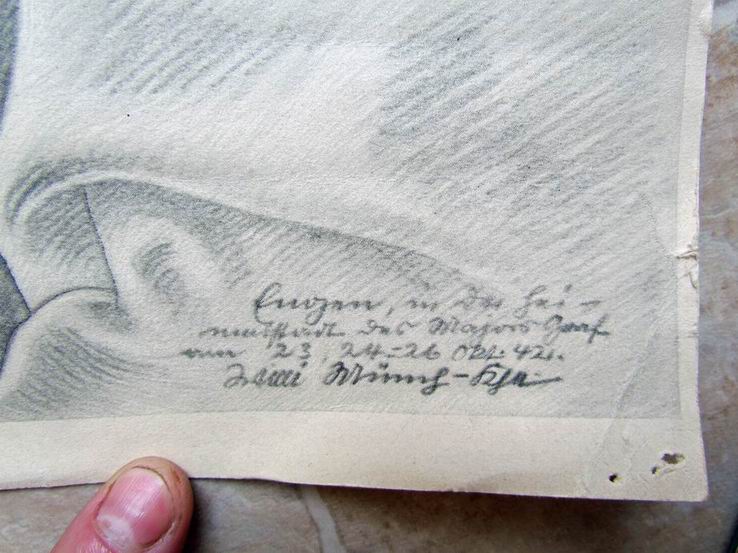 Engen, in der Hei-
matstadt des Majors Graf
am 23, 24-26 Okt. 42.
Willi Münch-Khe